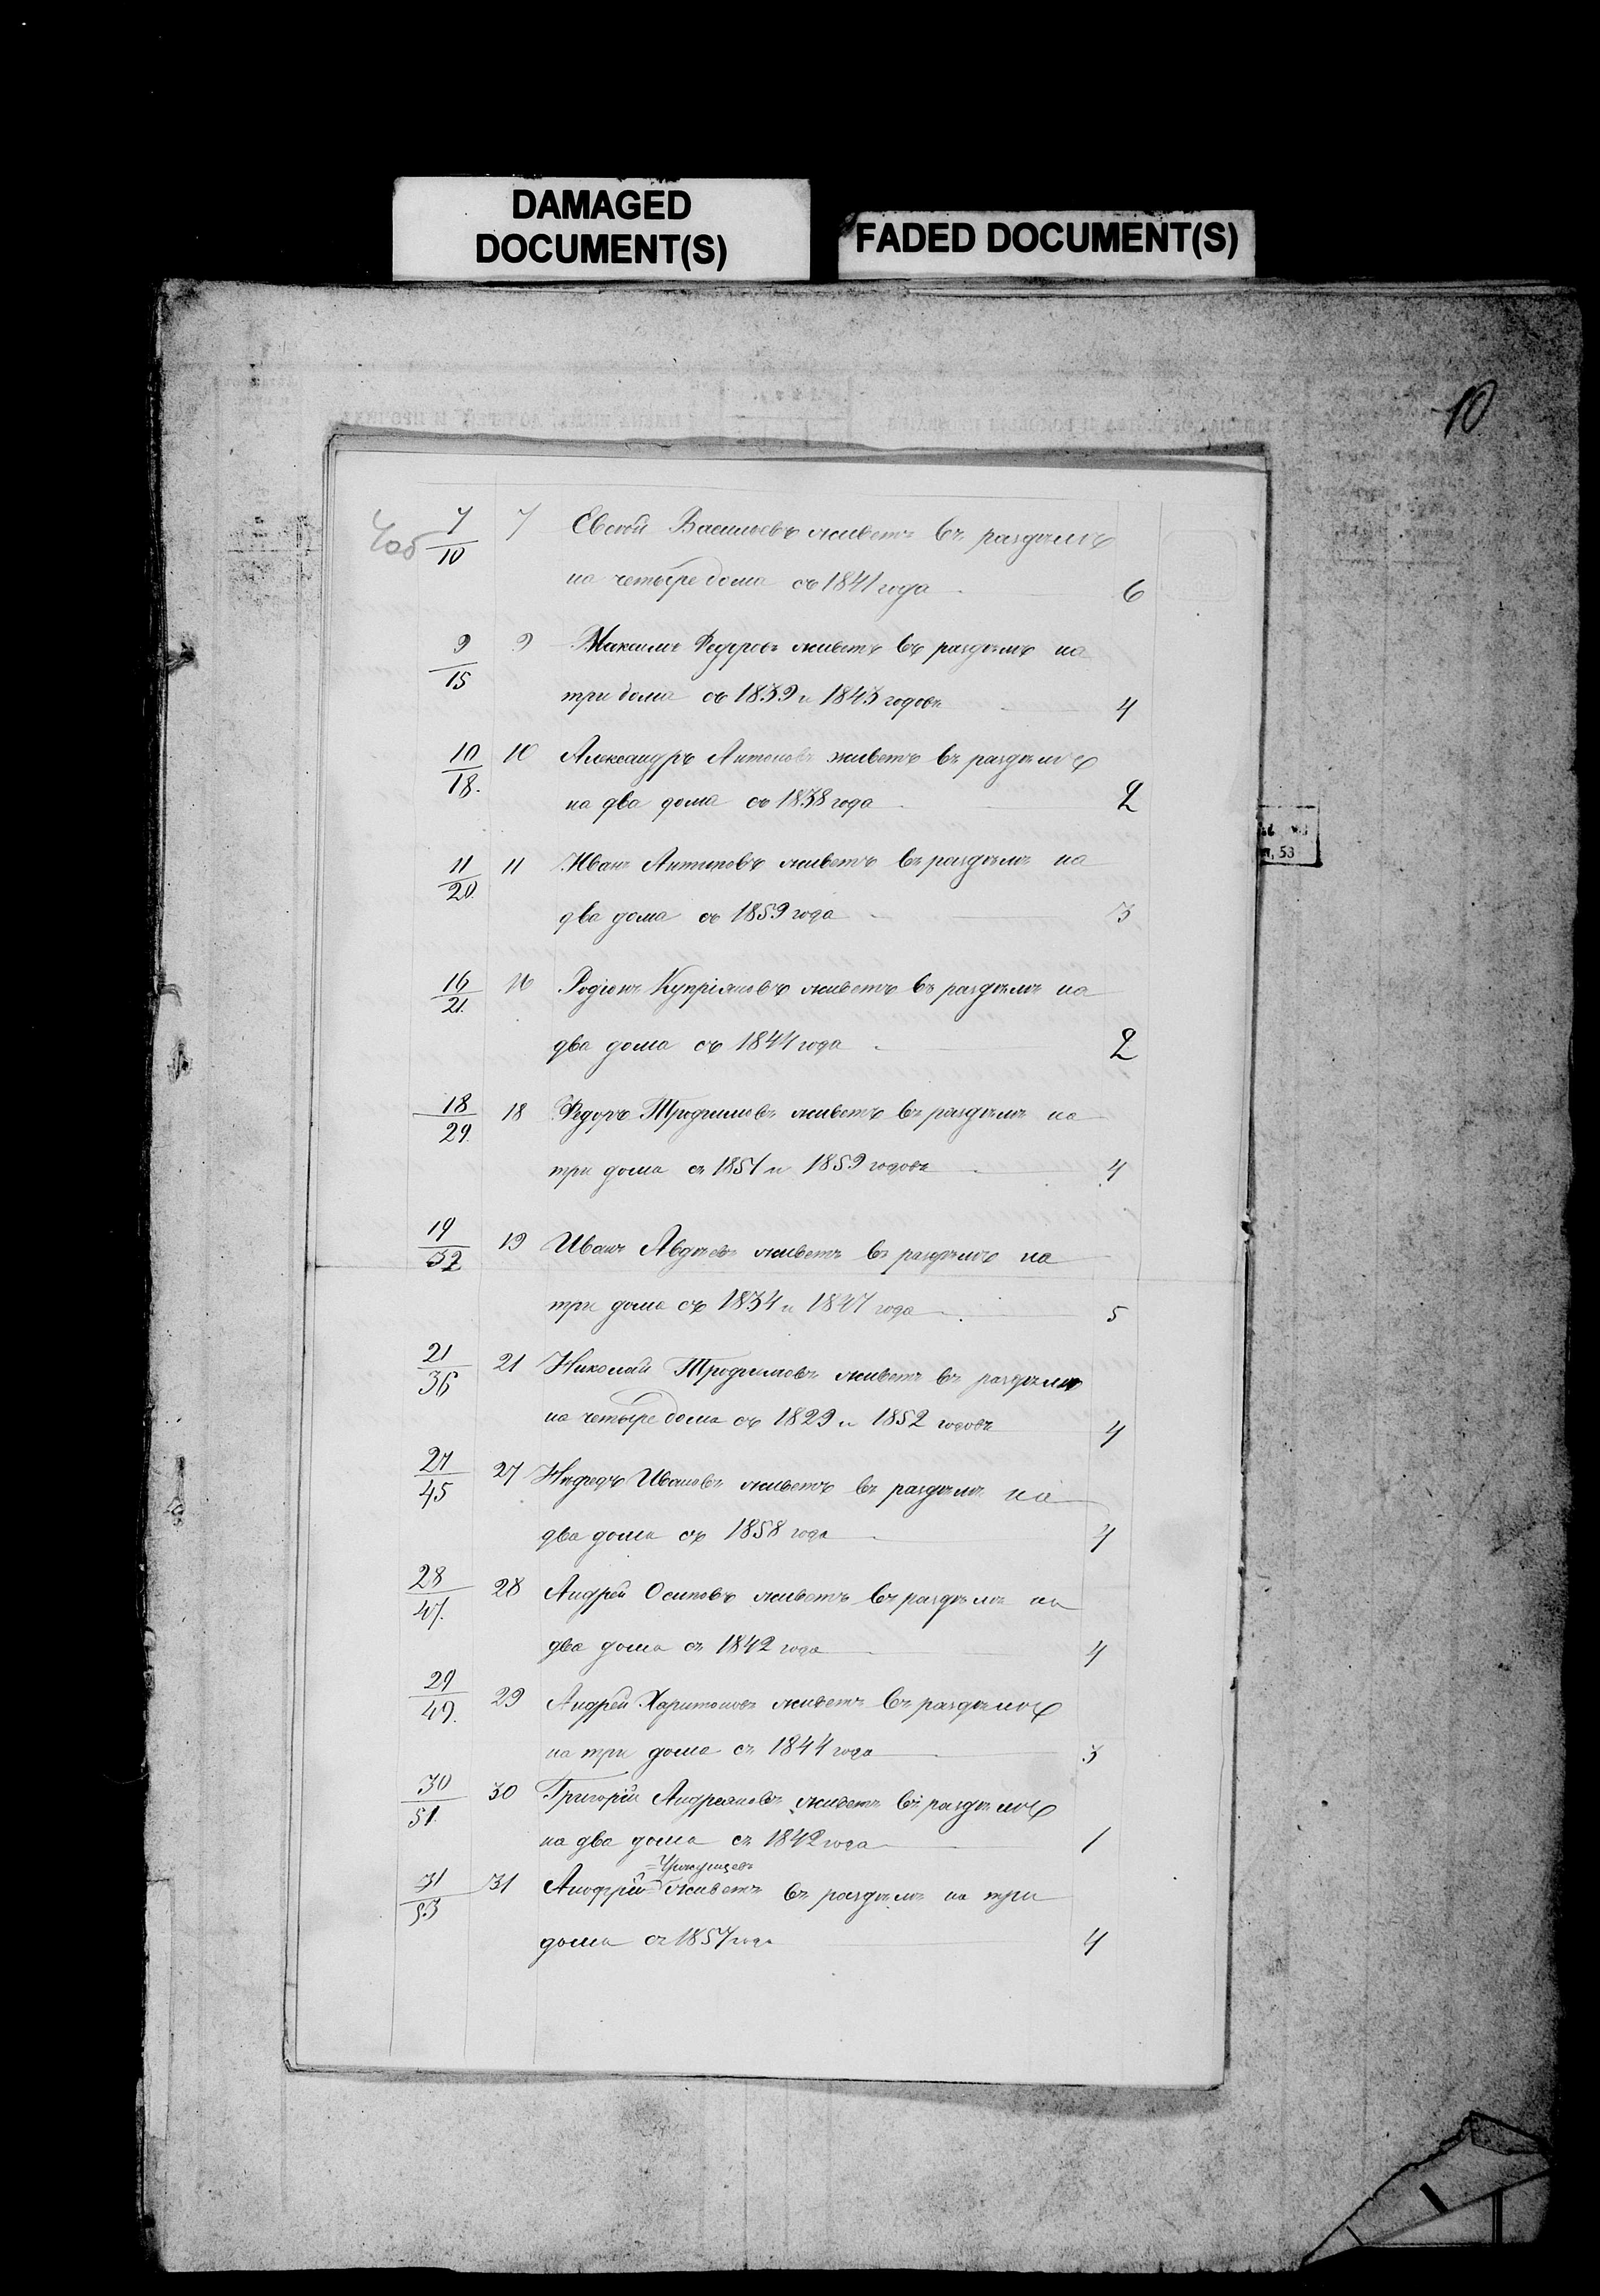 DAMAGED
DOCUMENT(S)
FADED DOCUMENT(S)
10
7/10 7 Евсей Васильевъ живетъ въ раздѣлѣ
на четыре дома съ 1841 года 6
9/15 9 Максимъ Федоровъ живетъ въ раздѣлѣ на
три дома съ 1839 и 1843 годовъ 4
10/18. 10 Александръ Антоновъ живетъ въ раздѣлѣ
на два дома съ 1838 года 2
11/20. 11 Иванъ Антиповъ живетъ въ раздѣлѣ на
два дома съ 1859 года 3
16/21. 16 Родіонъ Купріяновъ живетъ въ раздѣлѣ на
два дома съ 1844 года 2
18/29. 18 Федоръ Трофимовъ живетъ въ раздѣлѣ на
три дома съ 1857 и 1859 годовъ 4
19/32 19 Иванъ Авдѣевъ живетъ въ раздѣлѣ на
три дома съ 1834 и 1847 года 5
21/36 21 Николай Трофимовъ живетъ въ раздѣлѣ
на четыре дома съ 1829 и 1852 годовъ 4
27/45 27 Нефедъ Ивановъ живетъ въ раздѣлѣ на
два дома съ 1858 года 4
28/47. 28 Андрей Осиповъ живетъ въ раздѣлѣ на
два дома съ 1842 года 4
29/49. 29 Андрей Харитоновъ живетъ въ раздѣлѣ
на три дома съ 1844 года 3
30/51. 30 Григорій Андреяновъ живетъ въ раздѣлѣ
на два дома съ 1842 года 1
31/53 31 живетъ въ раздѣлѣ на три
дома съ 1857 года 4
53